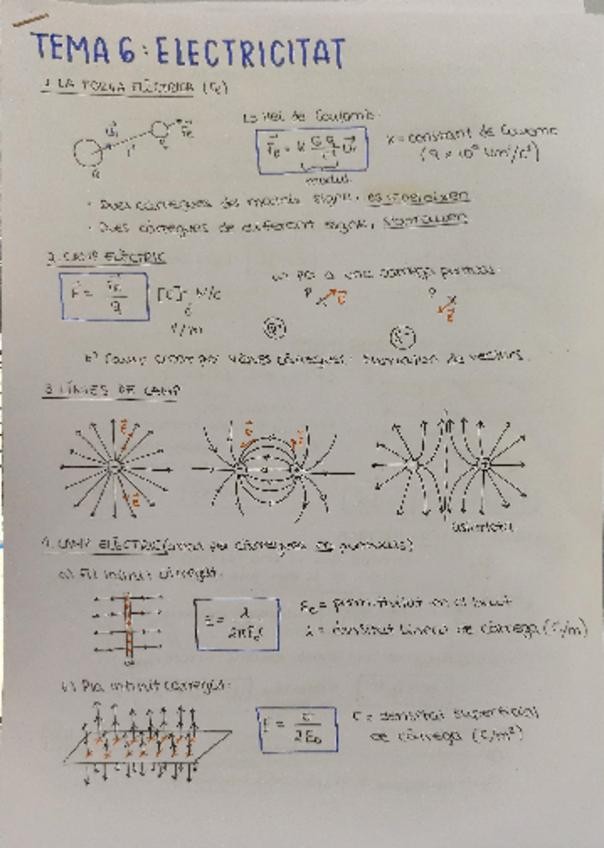 TEMA 6: ELECTRICITAT
1. LA FORÇA ELÈCTRICA (Fe)
Llei de Coulomb
K = constant de Coulomb
(9 × 10⁹ Nm²/C²)
mòdul
· Dues càrregues del mateix signe, es repel·leixen
· Dues càrregues de different signe, s'atrauen
2. CAMP ELÈCTRIC
[E] = N/C
V/m
a) Per a una càrrega puntual
P
b) Camp creat per vàries càrregues: Sumatori de vectors.
3. LÍNIES DE CAMP
4. CAMP ELÈCTRIC (creat per càrregues no puntuals)
a) Fil infinit carregat.
E = λ / 2πε₀r
ε₀ = permitivitat en el buit
λ = densitat lineal de càrrega (C/m)
b) Pla infinit carregat.
E = σ / 2ε₀
σ = densitat superficial
de càrrega (C/m²)